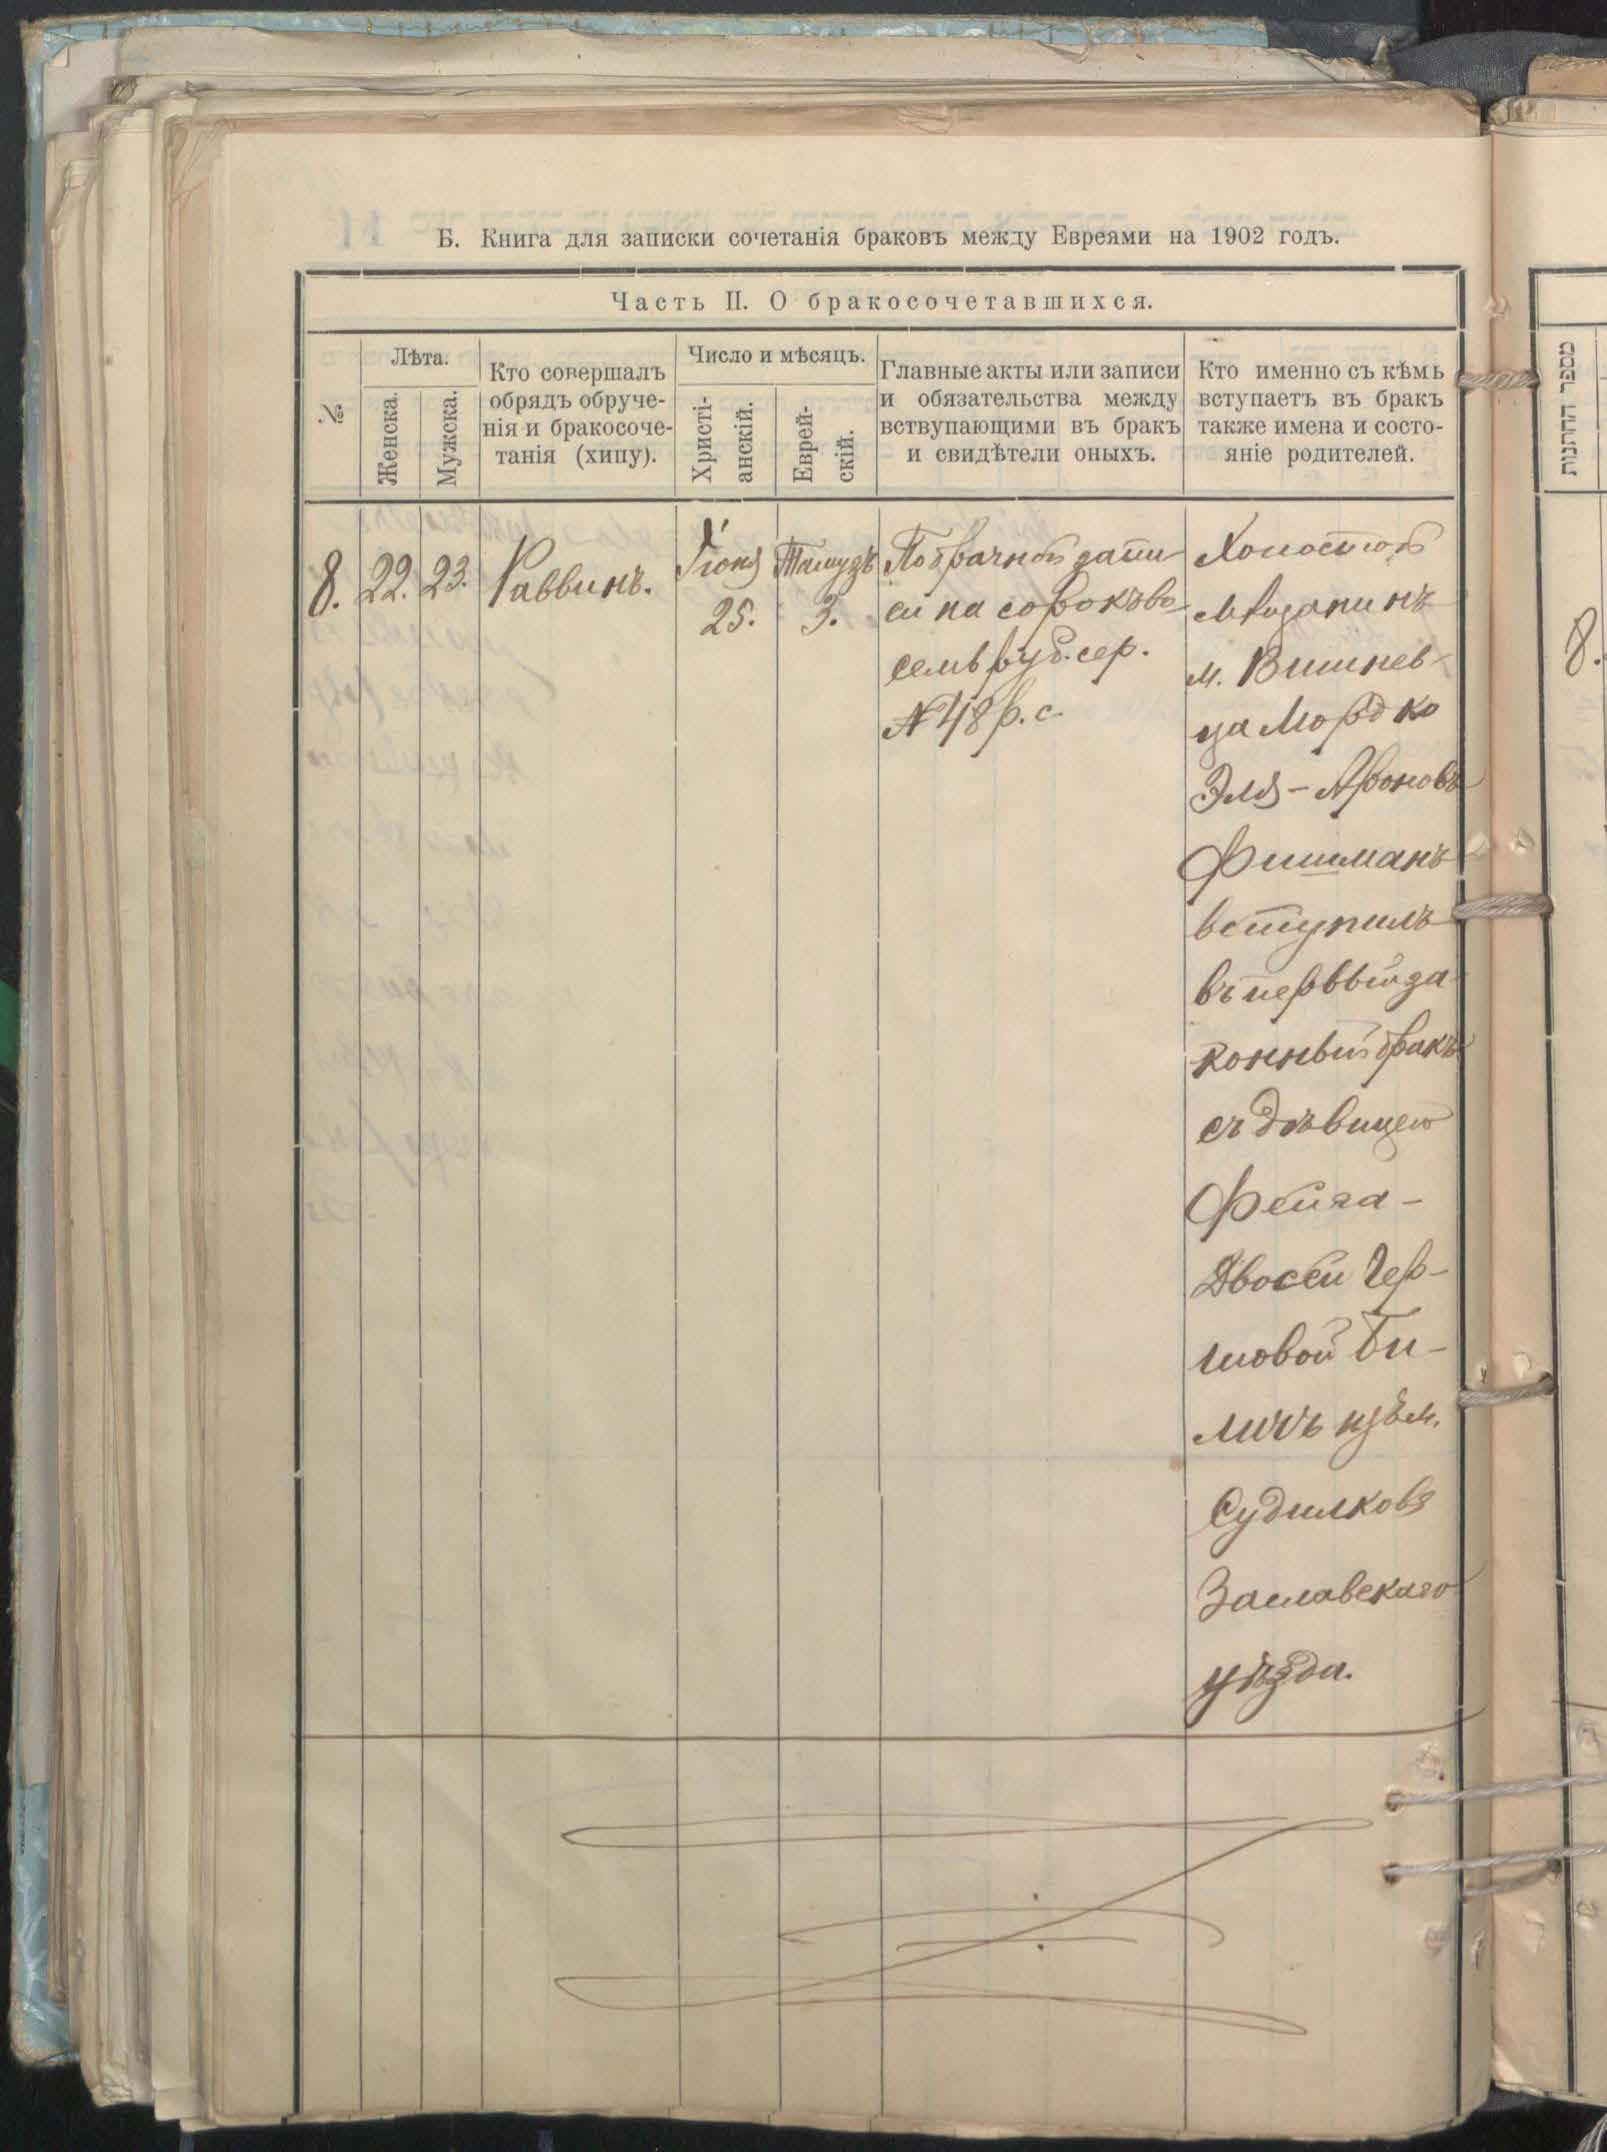 Б. Книга для записки сочетанія браковъ между Евреями на 1902 годъ.
Часть II. О бракосочетавшихся.
№
Лѣта.
Женска.
Мужска.
Кто совершалъ
обрядъ обруче-
нія и бракосоче-
танія (хипу).
Число и мѣсяцъ.
Христі-
анскій.
Еврей-
скій.
Главные акты или записи
и обязательства между
вствупающими въ бракъ
и свидѣтели оныхъ.
Кто именно съ кѣмъ
вступаетъ въ бракъ
также имена и состо-
яніе родителей.
8.
22.
23.
Раввинъ.
Іюня
25.
Тамузъ
3.
По брачной запи
си на сорокъ во
семь руб. сер.
№ 48 р. с.
Холостой
мѣщанинъ
м. Вишнев-
ца Мордко
Эля-Ароновъ
Фишманъ
вступилъ
въ первый за-
конный бракъ
съ дѣвицею
Фейга-
Двосей Гер-
шовой Би-
личъ изъ м.
Судилкова
Заславскаго
уѣзда.
מספר החתנות
8.